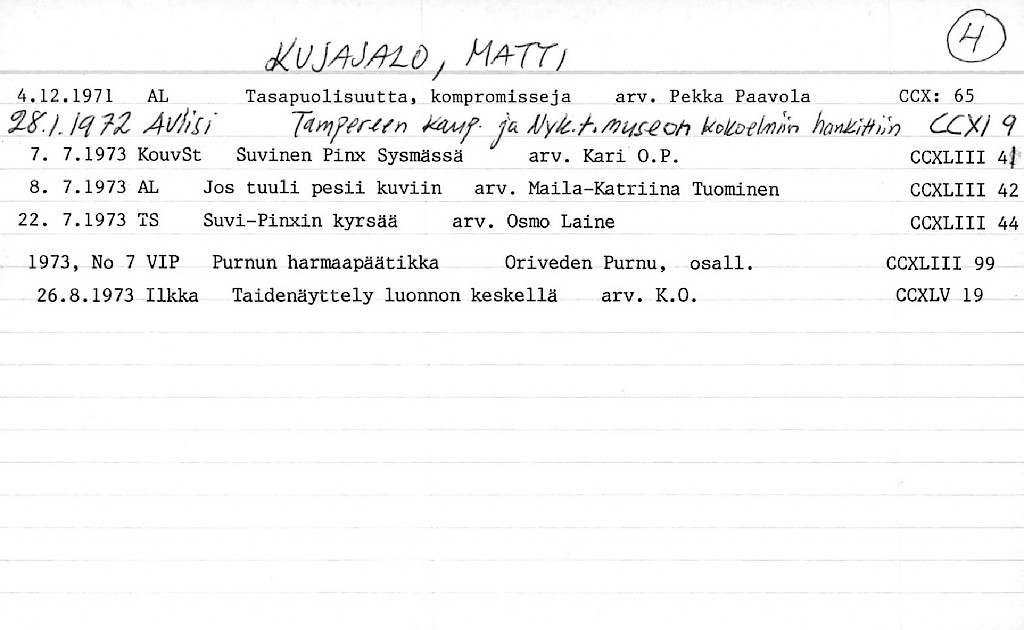 4
KUJASALO, MATTI
4.12.1971 AL Tasapuolisuutta, kompromisseja arv. Pekka Paavola CCX: 65
28.1.1972 AVIisi Tampereen kaup. ja Nyk.t.museon kokoelmiin hankittiin CCXI 9
7. 7.1973 KouvSt Suvinen Pinx Sysmässä arv. Kari O.P. CCXLIII 41
8. 7.1973 AL Jos tuuli pesii kuviin arv. Maila-Katriina Tuominen CCXLIII 42
22. 7.1973 TS Suvi-Pinxin kyrsää arv. Osmo Laine CCXLIII 44
1973, No 7 VIP Purnun harmaapäätikka Oriveden Purnu, osall. CCXLIII 99
26.8.1973 Ilkka Taidenäyttely luonnon keskellä arv. K.O. CCXLV 19